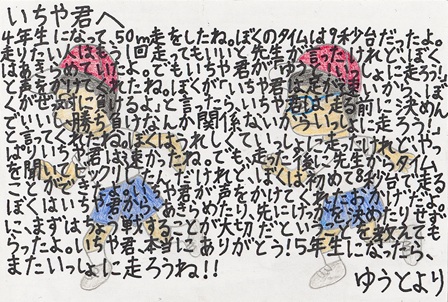 いちや君へ
4年生になって、50m走をしたね。ぼくのタイムは9秒台だったよ。
走りたい人はもう1回走ってもいいと先生が言ったけれど、ぼく
はあきらめていたよ。でもいちや君が「ゆうと、いっしょに走ろう!」
と声をかけてくれたね。ぼくが「いちや君は足が速いから、ぼ
くがぜっ対に負けるよ」と言ったら、いちや君は「走る前に決めん
でいい。勝ち負けなんか関係ないからいっしょに走ろう!」
と言ってくれたね。ぼくはうれしくていっしょに走ったけれど、やっ
ぱりいちや君は速かったね。でも、走った後に先生からタイム
を聞いてビックリしたんだけれど、ぼくは初めて8秒台で走る
ことができたよ。いちや君が声をかけてくれたおかげだよ。
ぼくはいちや君から、あきらめたり、先にけっかを決めたりせず
に、まずはちょう戦することが大切だということを教えても
らったよ。いちや君、本当にありがとう!5年生になったら、
またいっしょに走ろうね!!
ゆうとより